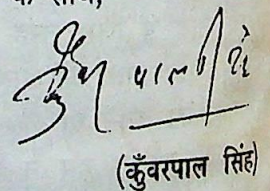 के साथ,
कुँवरपाल सिंह
(कुँवरपाल सिंह)